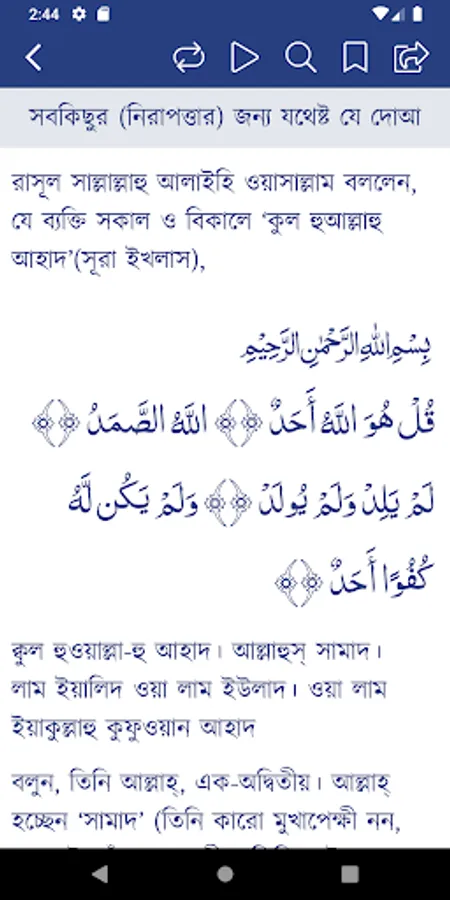 2:44
সবকিছুর (নিরাপত্তার) জন্য যথেষ্ট যে দোআ
রাসূল সাল্লাল্লাহু আলাইহি ওয়াসাল্লাম বললেন,
যে ব্যক্তি সকাল ও বিকালে ‘কুল হুআল্লাহু
আহাদ’(সূরা ইখলাস),
بِسْمِ اللهِ الرَّحْمٰنِ الرَّحِيْمِ
قُلْ هُوَ اللَّهُ أَحَدٌ ﴿﴾ اللَّهُ الصَّمَدُ ﴿﴾
لَمْ يَلِدْ وَلَمْ يُولَدْ ﴿﴾ وَلَمْ يَكُن لَّهُ
كُفُوًا أَحَدٌ ﴿﴾
ক্বুল হুওয়াল্লা-হু আহাদ। আল্লাহুস্ সামাদ।
লাম ইয়ালিদ ওয়া লাম ইউলাদ। ওয়া লাম
ইয়াকুল্লাহু কুফুওয়ান আহাদ
বলুন, তিনি আল্লাহ্, এক-অদ্বিতীয়। আল্লাহ্
হচ্ছেন ‘সামাদ’ (তিনি কারো মুখাপেক্ষী নন,